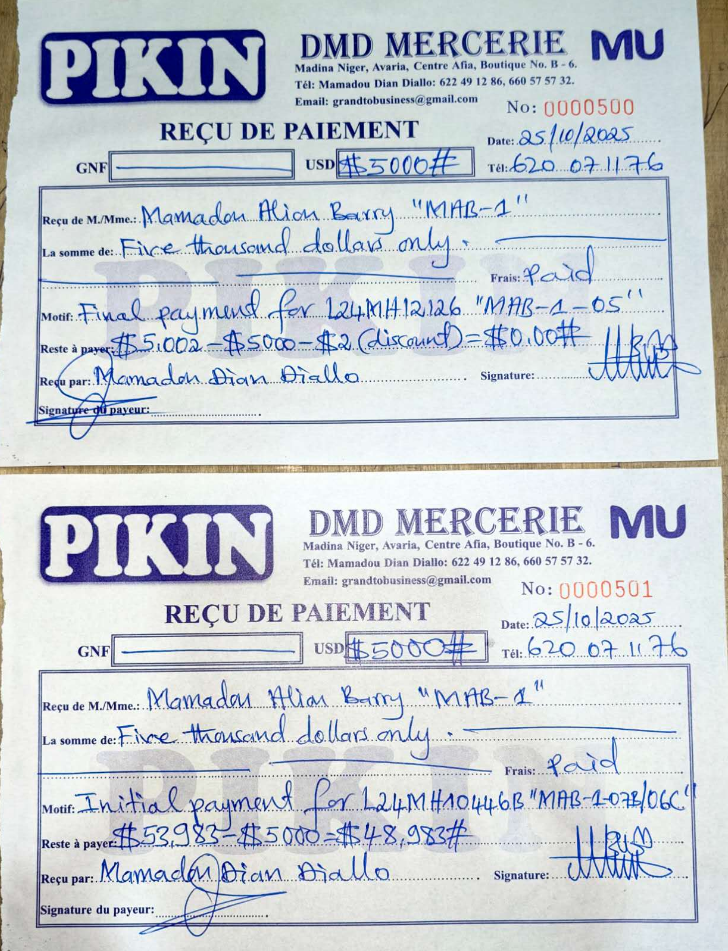 PIKIN
DMD MERCERIE MU
Madina Niger, Avaria, Centre Afia, Boutique No. B - 6.
Tél: Mamadou Dian Diallo: 622 49 12 86, 660 57 57 32.
Email: grandtobusiness@gmail.com
No: 0000500
REÇU DE PAIEMENT
Date: 25/10/2025
GNF USD $5000#
Tél: 620 07 11 76
Reçu de M./Mme.: Mamadou Aliou Barry "MAB-1"
La somme de: Five thousand dollars only.
Frais: Paid
Motif: Final payment for L24MH12,126 "MAB-1-05"
Reste à payer: $5,002-$5000-$2 (discount)=$0.00#
Reçu par: Mamadou Dian Diallo Signature:
Signature du payeur:
PIKIN
DMD MERCERIE MU
Madina Niger, Avaria, Centre Afia, Boutique No. B - 6.
Tél: Mamadou Dian Diallo: 622 49 12 86, 660 57 57 32.
Email: grandtobusiness@gmail.com
No: 0000501
REÇU DE PAIEMENT
Date: 25/10/2025
GNF USD $5000#
Tél: 620 07 11 76
Reçu de M./Mme.: Mamadou Aliou Barry "MAB-1"
La somme de: Five thousand dollars only.
Frais: Paid
Motif: Initial payment for L24MH10446B "MAB-1-07B/06C"
Reste à payer: $53,983-$5000=$48,983#
Reçu par: Mamadou Dian Diallo Signature:
Signature du payeur: